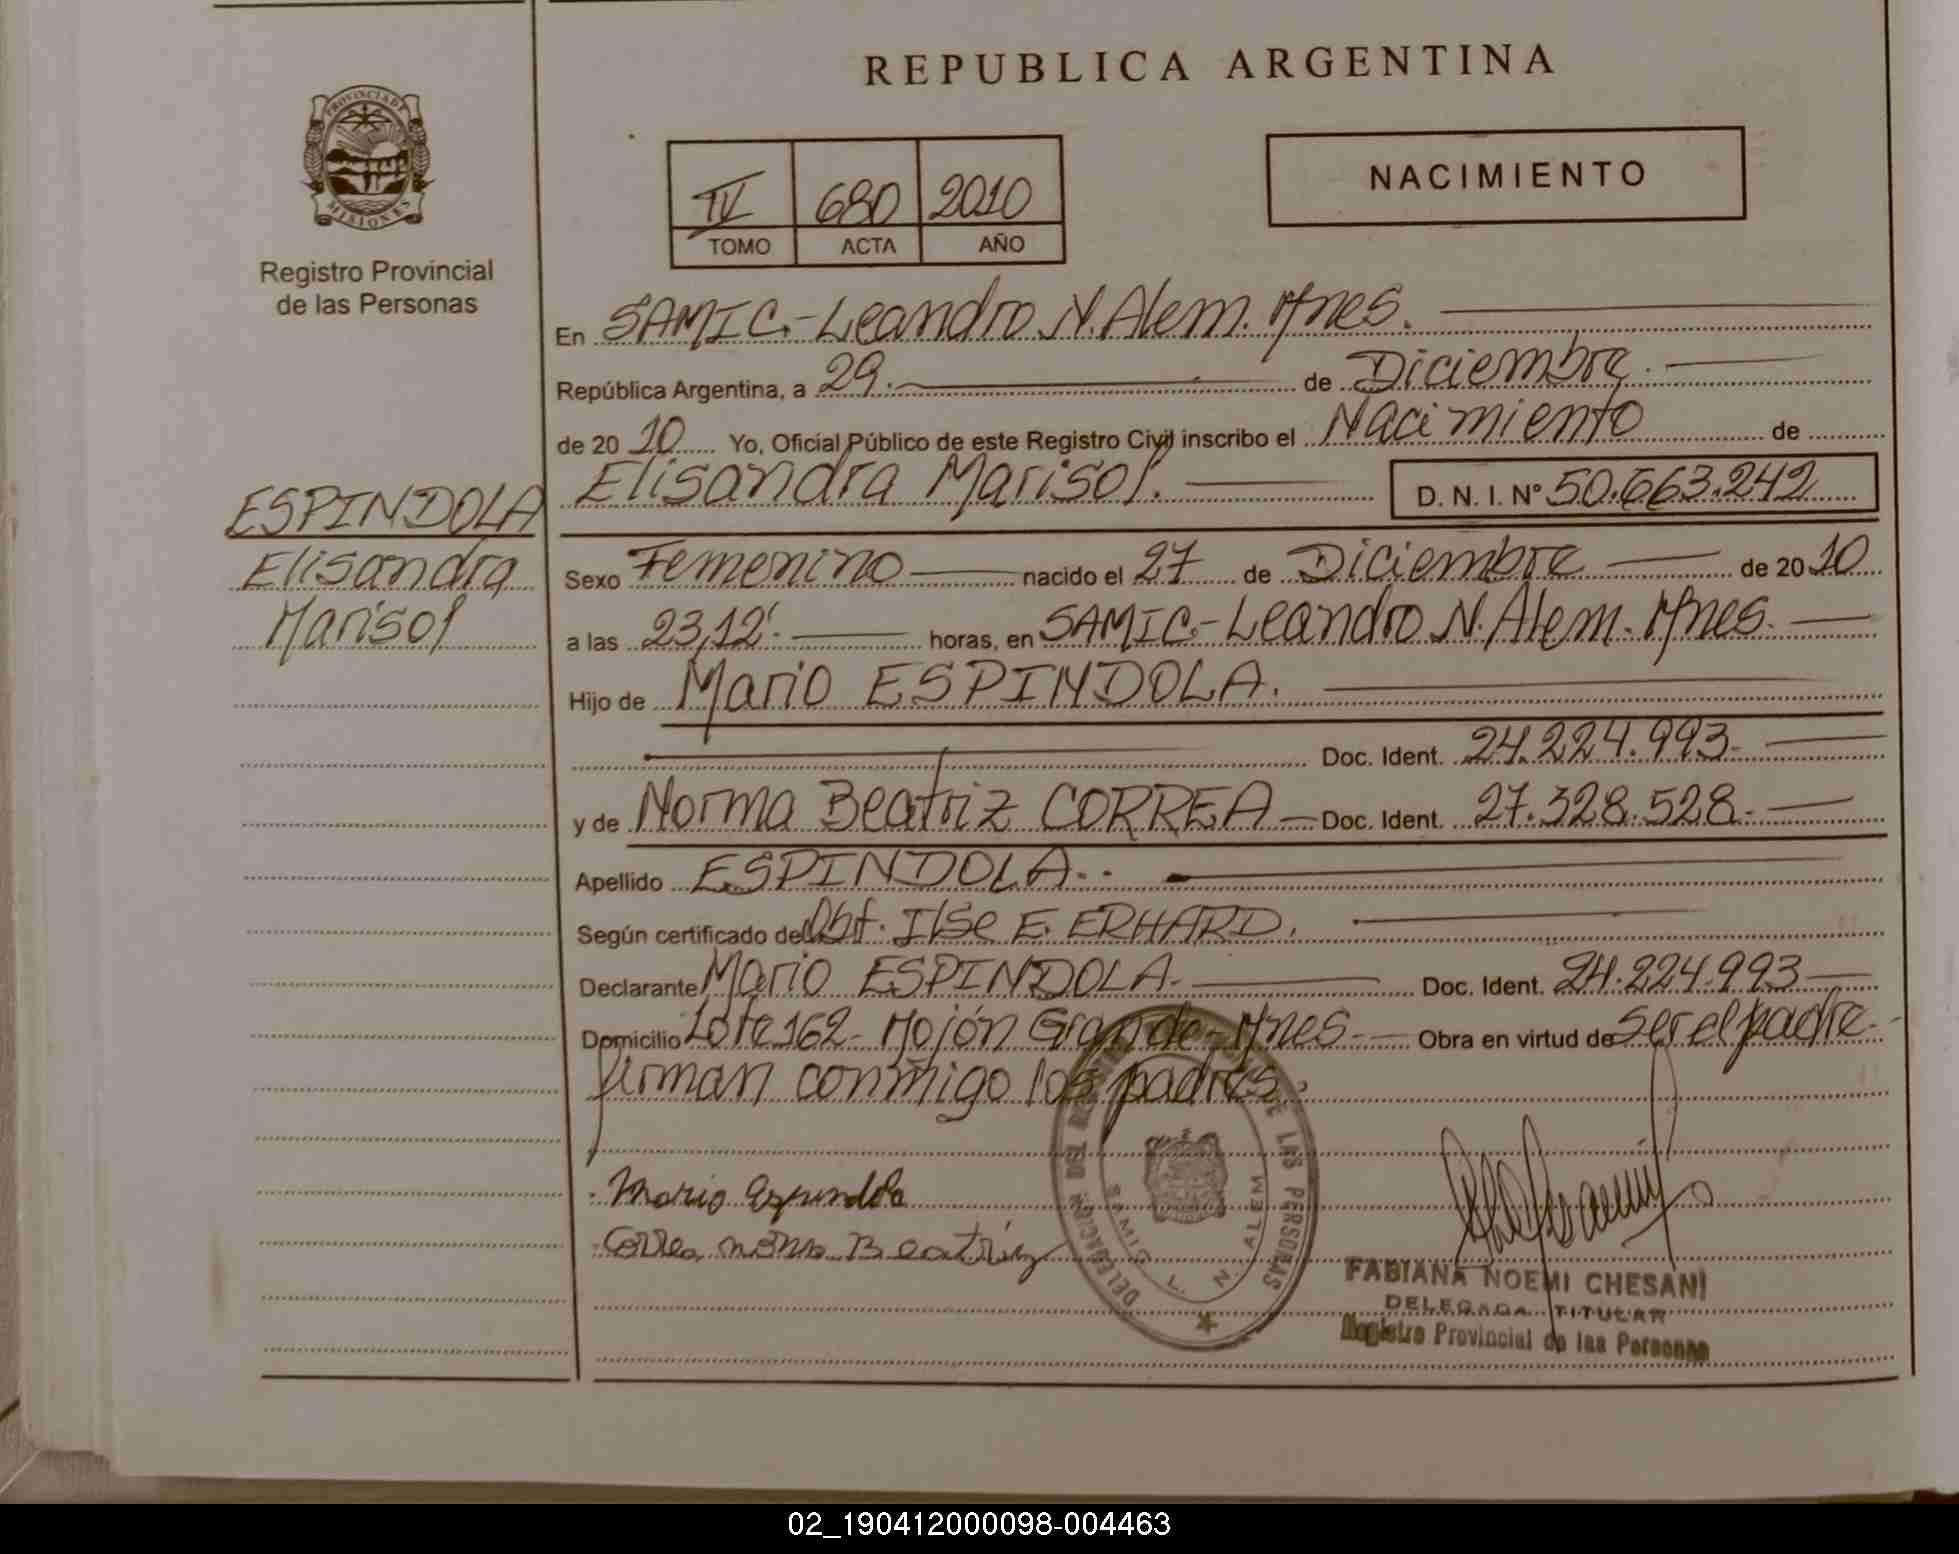 REPUBLICA ARGENTINA
PROVINCIA DE MISIONES
Registro Provincial
de las Personas
IV 680 2010
TOMO ACTA AÑO
NACIMIENTO
En SAMIC.-Leandro N. Alem. Mnes.
República Argentina, a 29. de Diciembre.
de 2010 Yo, Oficial Público de este Registro Civil inscribo el Nacimiento de
Elisandra Marisol. D. N. I. Nº 50.663.242
ESPINDOLA
Elisandra
Marisol
Sexo Femenino nacido el 27 de Diciembre de 2010
a las 23,12'. horas, en SAMIC.-Leandro N. Alem. Mnes.
Hijo de Mario ESPINDOLA.
Doc. Ident. 24.224.993.-
y de Norma Beatriz CORREA - Doc. Ident. 27.328.528.-
Apellido ESPINDOLA..
Según certificado de Obt. Ilse E. ERHARD.
Declarante Mario ESPINDOLA.- Doc. Ident. 24.224.993
Domicilio Lote 162- Mojón Grande- Mnes.- Obra en virtud de ser el padre.-
firman conmigo los padres.
Mario Espindola
Correa norma Beatriz
DELEGACION DEL REGISTRO PROVINCIAL DE LAS PERSONAS
SAMIC L. N. ALEM
FABIANA NOEMI CHESANI
DELEGADA TITULAR
Registro Provincial de las Personas
02_190412000098-004463